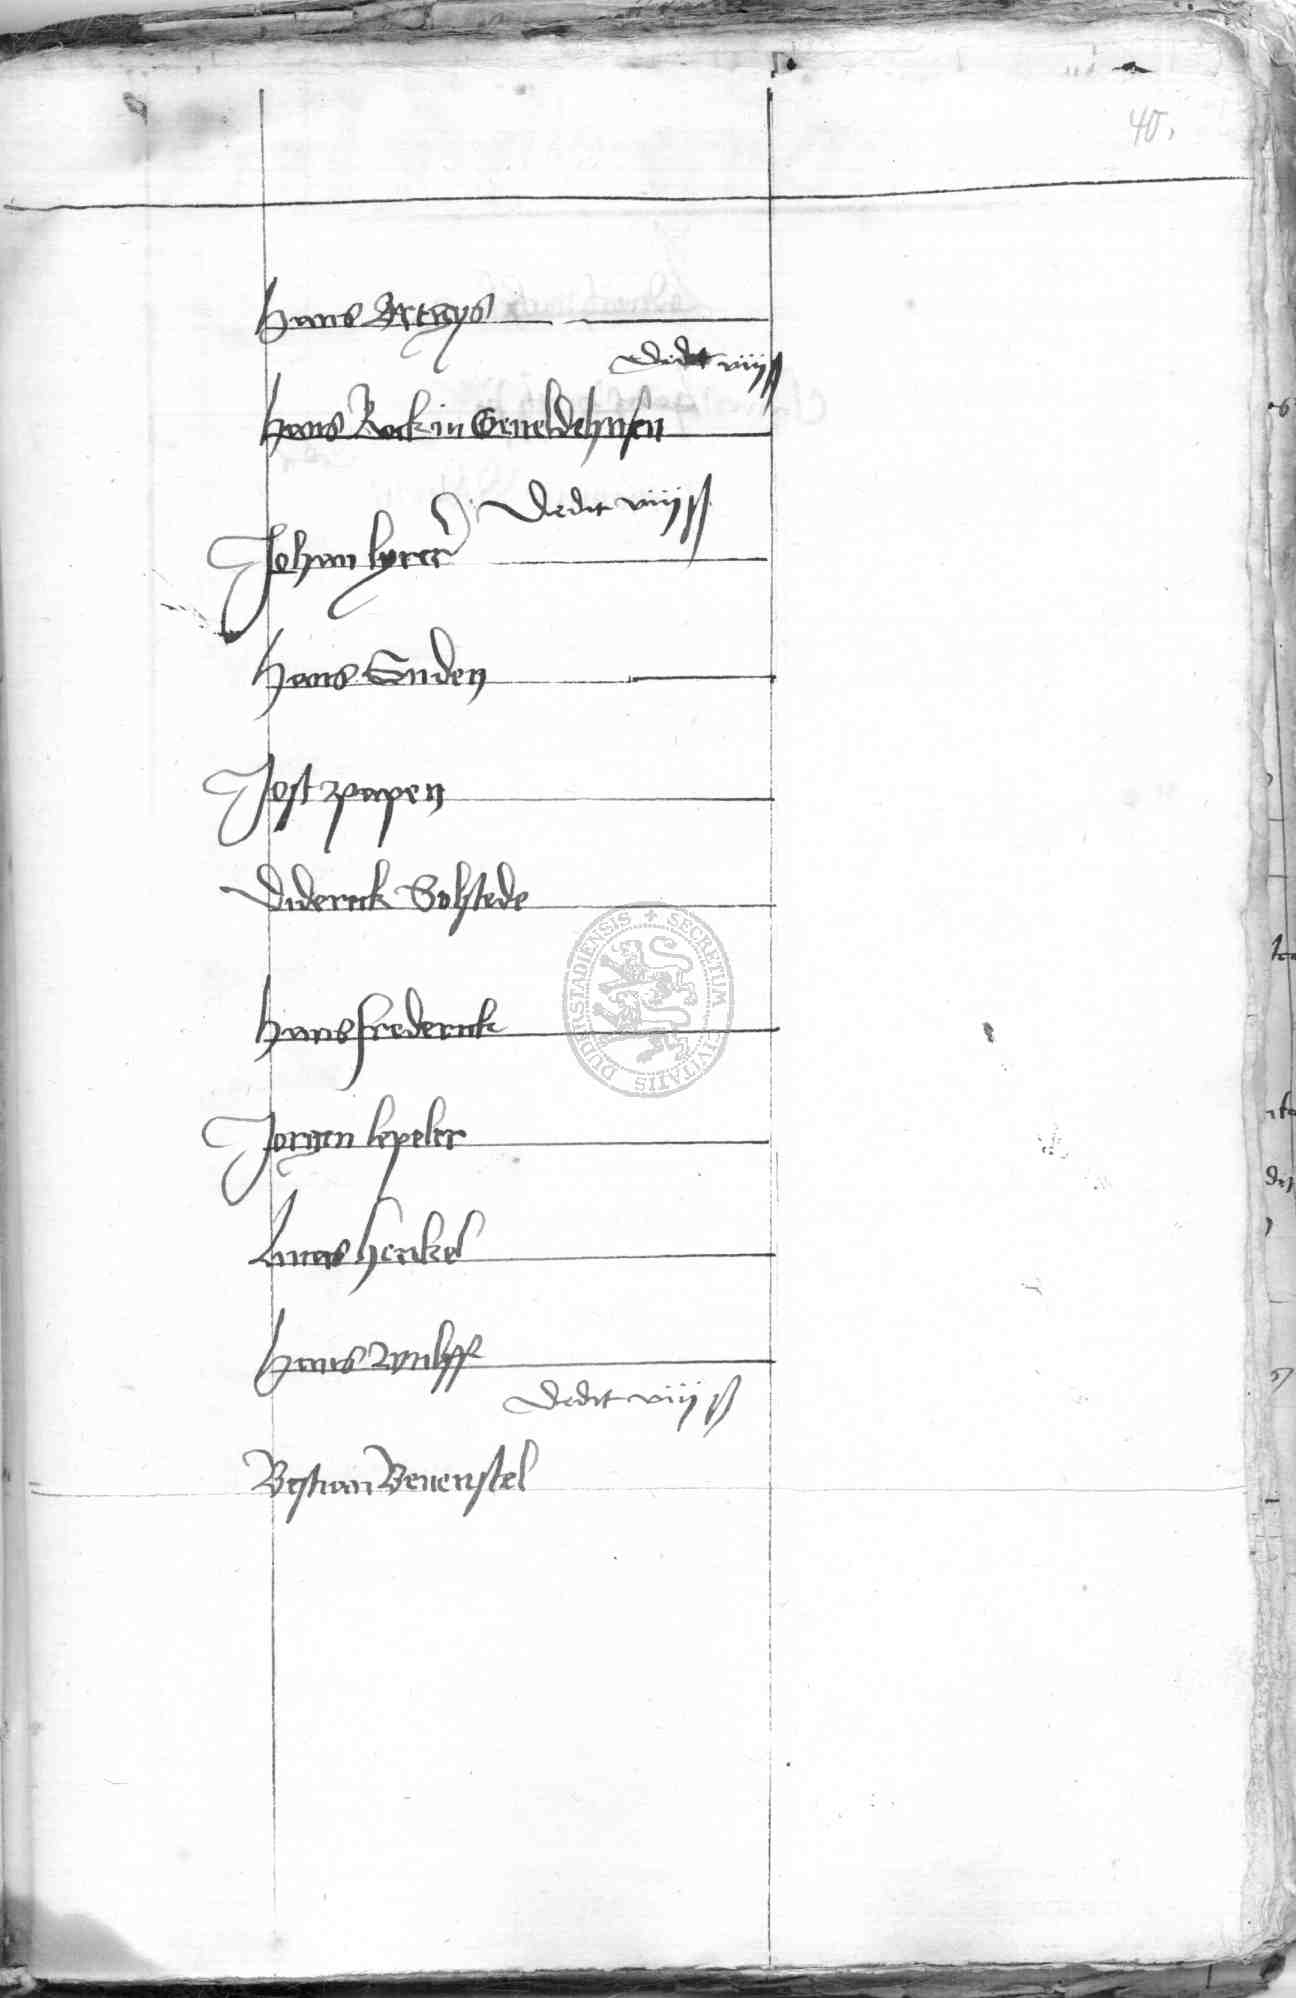 40.
Hans Artheys
Dedit viiij ß
Hans Kock in Geueldehusen
Dedit viiij ß
Johan lyrer
Hans Guden
Jost papen
Diderick Solstede
Hans frederick
Jorgen lepeler
hans henkel
Hans Wulff
Dedit viiij ß
Bestian Beuenstel
SECRETUM CIVITATIS DUDERSTADIENSIS